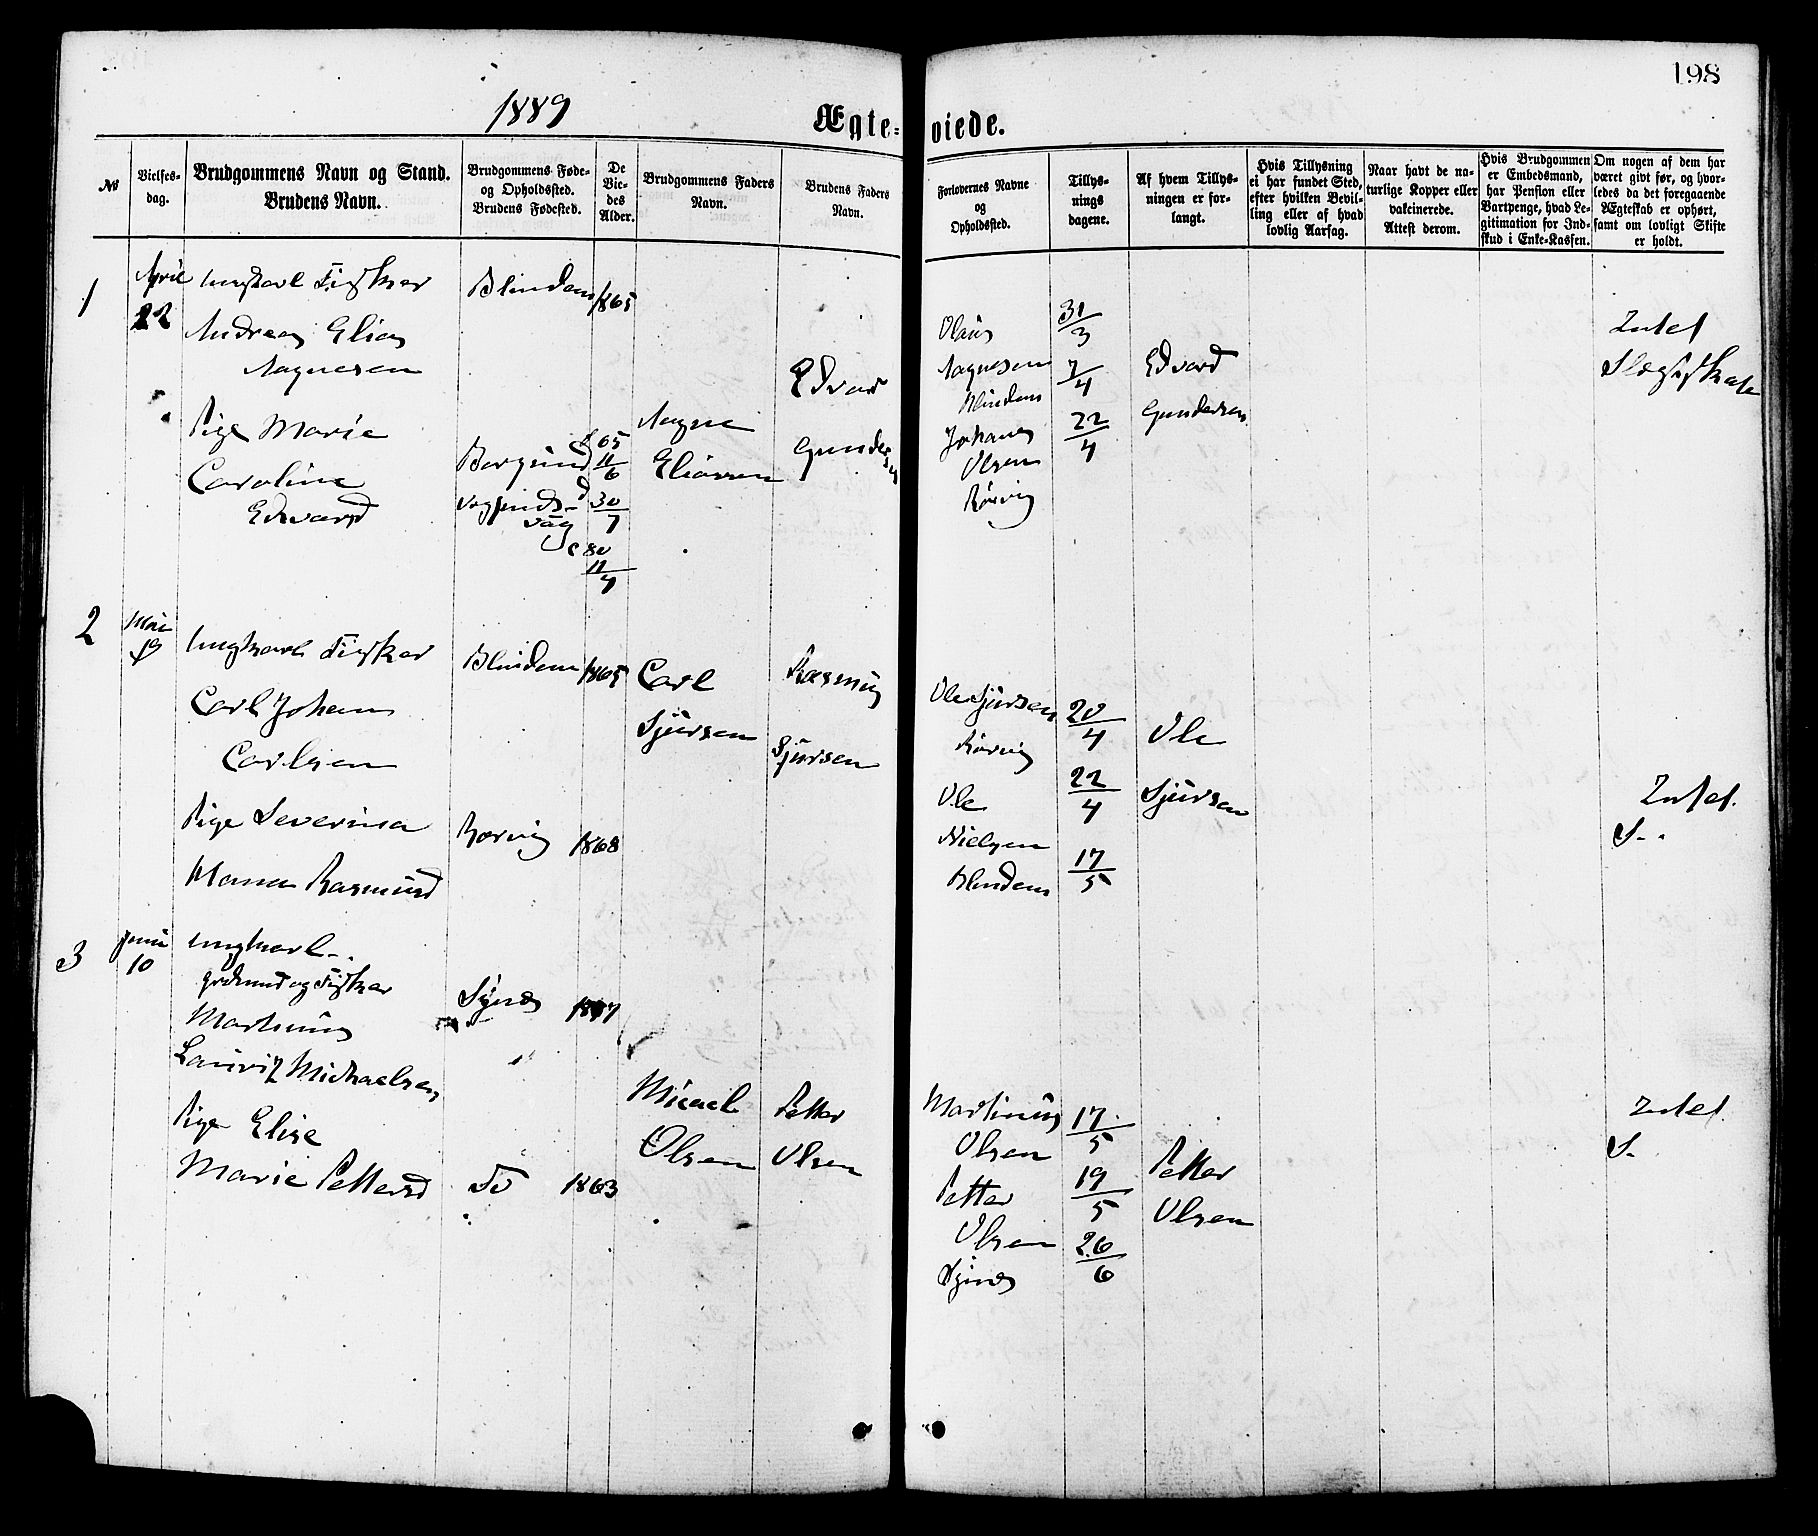 198
1889
Ægte-
viede.
№
Vielses-
dag.
Brudgommens Navn og Stand.
Brudens Navn.
Brudgommens Føde-
og Opholdssted.
Brudens Fødested.
De
Vie-
des
Alder.
Brudgommens Faders
Navn.
Brudens Faders
Navn.
Forlovernes Navne
og
Opholdssted.
Tillys-
nings
dagene.
Af hvem Tillys-
ningen er for-
langt.
Hvis Tillysning
ei har fundet Sted,
efter hvilken Bevil-
ling eller af hvad
lovlig Aarsag.
Naar havt de na-
turlige Kopper eller
vakcinerede.
Attest derom.
Hvis Brudgommen
er Embedsmand,
har Pension eller
Vartpenge, hvad Le-
gitimation for Ind-
skud i Enke-Kassen.
Om nogen af dem har
været givt før, og hvor-
ledes da det foregaaende
Ægteskab er ophørt,
samt om lovligt Skifte
er holdt.
1
April
22
Ungkarl Fisker
Andreas Elias
Aagnesen
Pige Marie
Caroline
Edvardsd
Blindem
1865
Borgund
65
11/6
30/7
80
11/4
Aagne
Eliassen
Edvard
Gundersen
Olaus
Aagnesen
Blindem
Johannes
Olsen
Rørvig
31/3
7/4
22/4
Edvard
Gundersen
Intet
Slægtskab
2
Mai
19
Ungkarl Fisker
Carl Johan
Carlsen
Pige Severina
Mama Rasmusd
Blindem
1865
Rørvig
1868
Carl
Sjursen
Rasmus
Sjursen
Ole Sjursen
Rørvig
Ole
Nielsen
Blindem
20/4
22/4
17/5
Ole
Sjursen
Intet.
S-.
3
Juni
10
Ungkarl-.
grdmand og Fisker
Martinus
Lauritz Michaelsen
Pige Elise
Marie Pettersd
Synes
"
Do
1863
Micael
Olsen
Petter
Olsen
Martinus
Olsen
Petter
Olsen
Synes
17/5
19/5
26/6
Petter
Olsen
Intet
S-